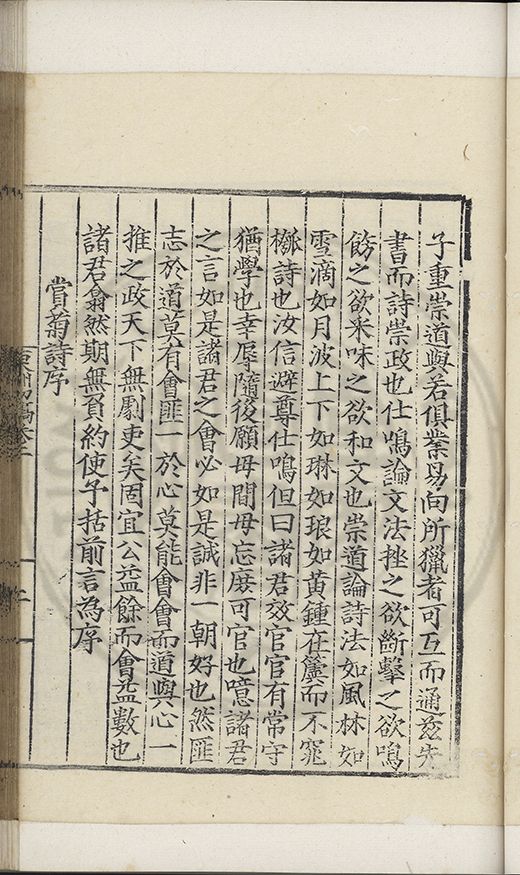 子重崇道與若俱業易向所獵者可互而通兹先
書而詩崇政也仕鳴論文法挫之欲斷擊之欲鳴
飭之欲采味之欲和文也崇道論詩法如風林如
雪滴如月波上下如琳如琅如黃鍾在簴而不窕
槬詩也汝信避尊仕鳴但曰諸君效官官有常守
猶學也幸辱隨後願毋間毋忘麽可官也噫諸君
之言如是諸君之會必如是誠非一朝好也然匪
志於道莫有會匪一於心莫能會會而道與心一
推之政天下無劇吏矣固宜公益餘而會益數也
諸君翕然期無負約使予括前言為序
賞菊詩序